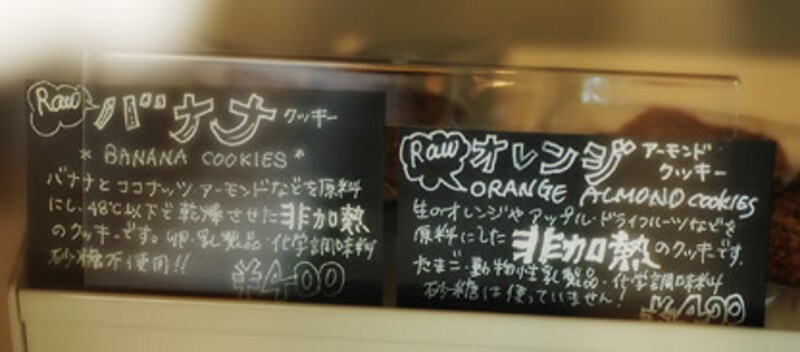 Raw バナナ クッキー
* BANANA COOKIES *
バナナとココナッツ アーモンドなどを原料
にし、48℃以下で乾燥させた非加熱
のクッキーです。卵・乳製品・化学調味料
砂糖不使用!!
¥400
Raw オレンジ アーモンド
クッキー
ORANGE ALMOND COOKIES
生のオレンジや アップル・ドライフルーツなどを
原料にした 非加熱のクッキーです。
たまご・動物性乳製品・化学調味料
砂糖は使っていません!
¥400